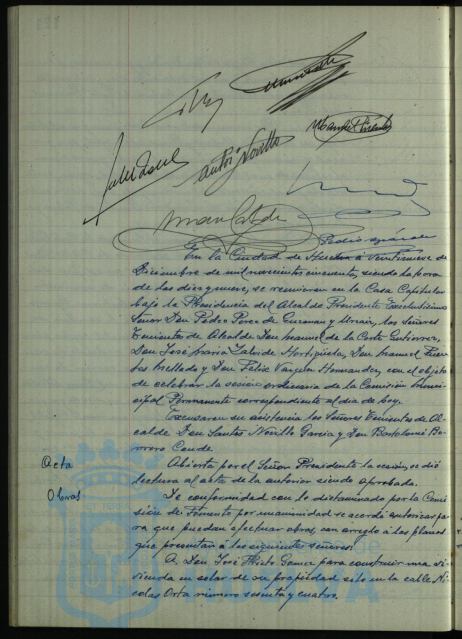 Antº Novillo
Pedro
En la Ciudad de Huelva á veintinueve de
Diciembre de mil novecientos cincuenta, siendo la hora
de las diez y nueve, se reunieron en la Casa Capitular
bajo la Presidencia del Alcalde Presidente Excelentísimo
Señor Don Pedro Perez de Guzman y Urzaiz, los Señores
Tenientes de Alcalde Don Manuel de la Corte Gutierrez,
Don José María Zalvide Hortigüela, Don Manuel Fuen
tes Mellado y Don Felix Vazquez Hernandez, con el objeto
de celebrar la sesión ordinaria de la Comisión Muni
cipal Permanente correspondiente al dia de hoy.
Excusaron su asistencia los Señores Tenientes de Al
calde Don Santos Novillo Garcia y Don Bartolomé Ba
rrero Conde.
Acta
Abierta por el Señor Presidente la sesión, se dió
lectura al acta de la anterior siendo aprobada.
Obras
De conformidad con lo dictaminado por la Comi
sión de Fomento, por unanimidad se acordó autorizar pa
ra que puedan efectuar obras, con arreglo a los planos
que presentan á los siguientes señores:
A Don José Prieto Gomez para construir una vi
vienda en solar de su propiedad sito en la calle Ni
colas Orta número sesenta y cuatro.